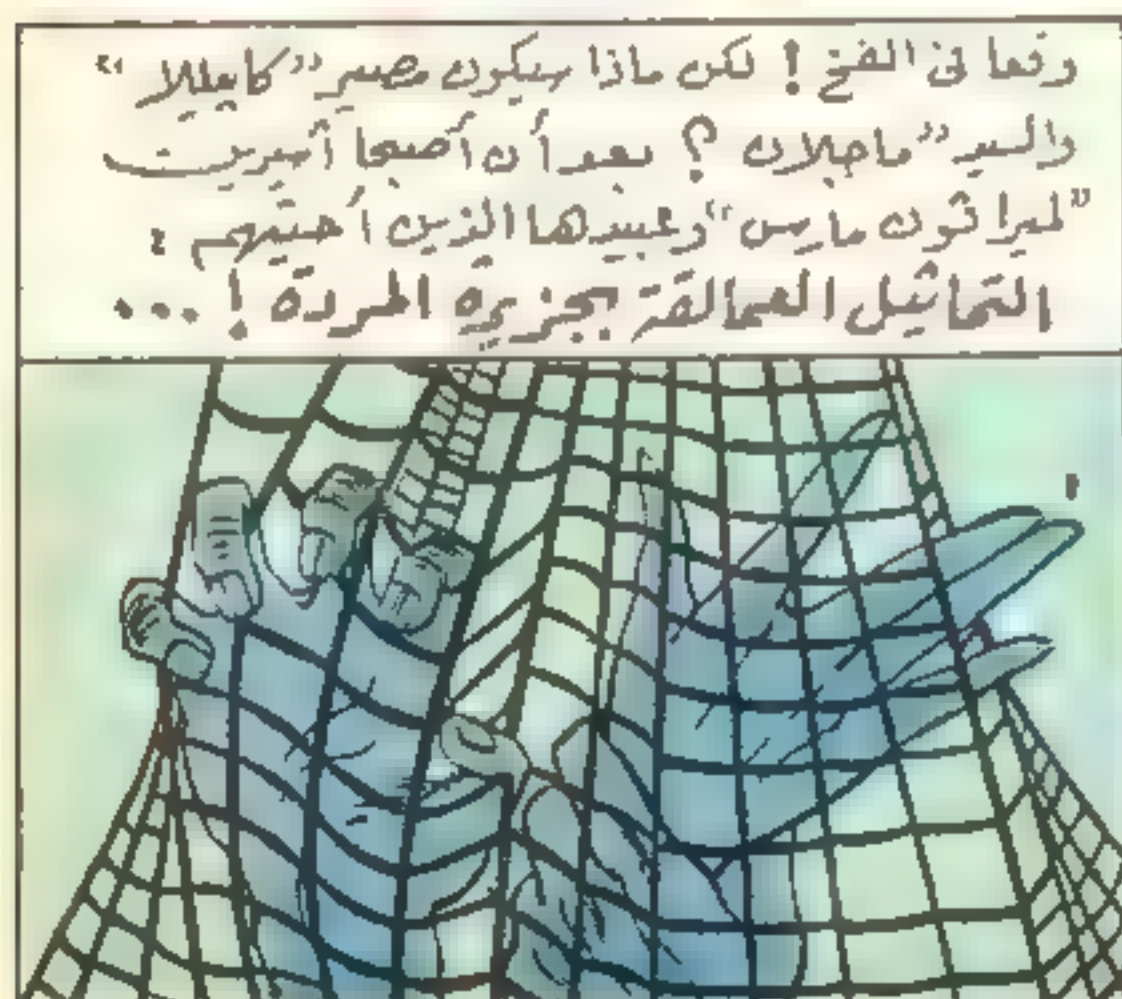 وقعا في الفخ ! لكن ماذا سيكون مصير "كاميللا"
والسيد "ماجلان ؟ بعد أن أصبحا أسيرين
"لميراثون مارس" وعبيدها الذين أحيتهم :
التماثيل العمالقة بجزيرة المردة ! ...